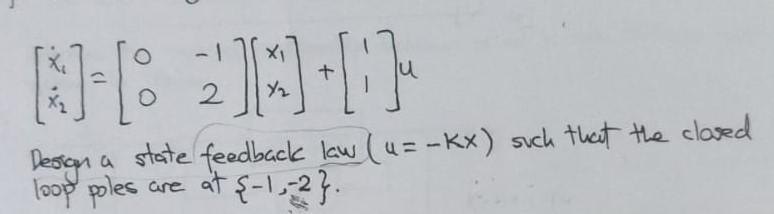 [ẋ₁ ẋ₂] = [0 -1 0 2] [x₁ x₂] + [1 1] u
Design a state feedback law (u = -Kx) such that the closed
loop poles are at {-1,-2}.